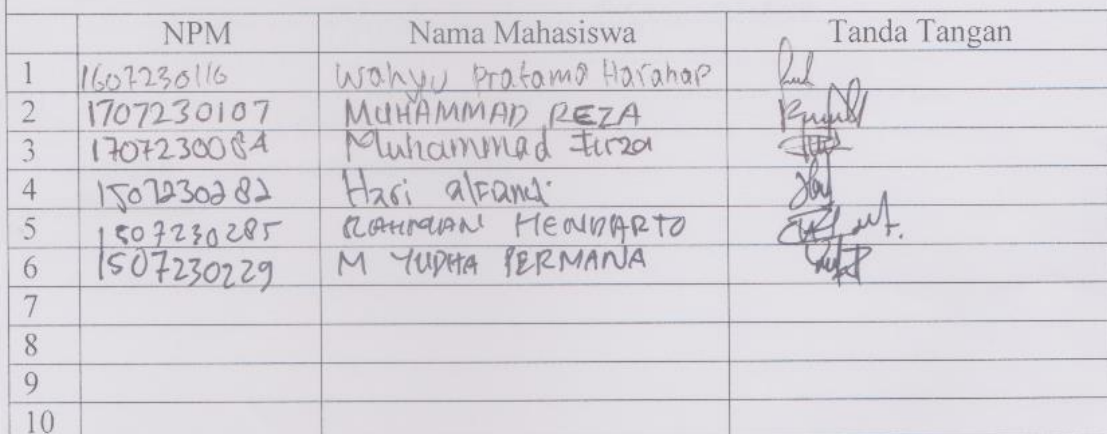 NPM Nama Mahasiswa Tanda Tangan
1 1607230116 Wahyu Pratama Harahap
2 1707230107 MUHAMMAD REZA
3 1707230084 Muhammad Firza
4 1507230282 Hari alFandi
5 1507230285 RAHMAN HENDARTO
6 1507230229 M YUDHA PERMANA
7
8
9
10